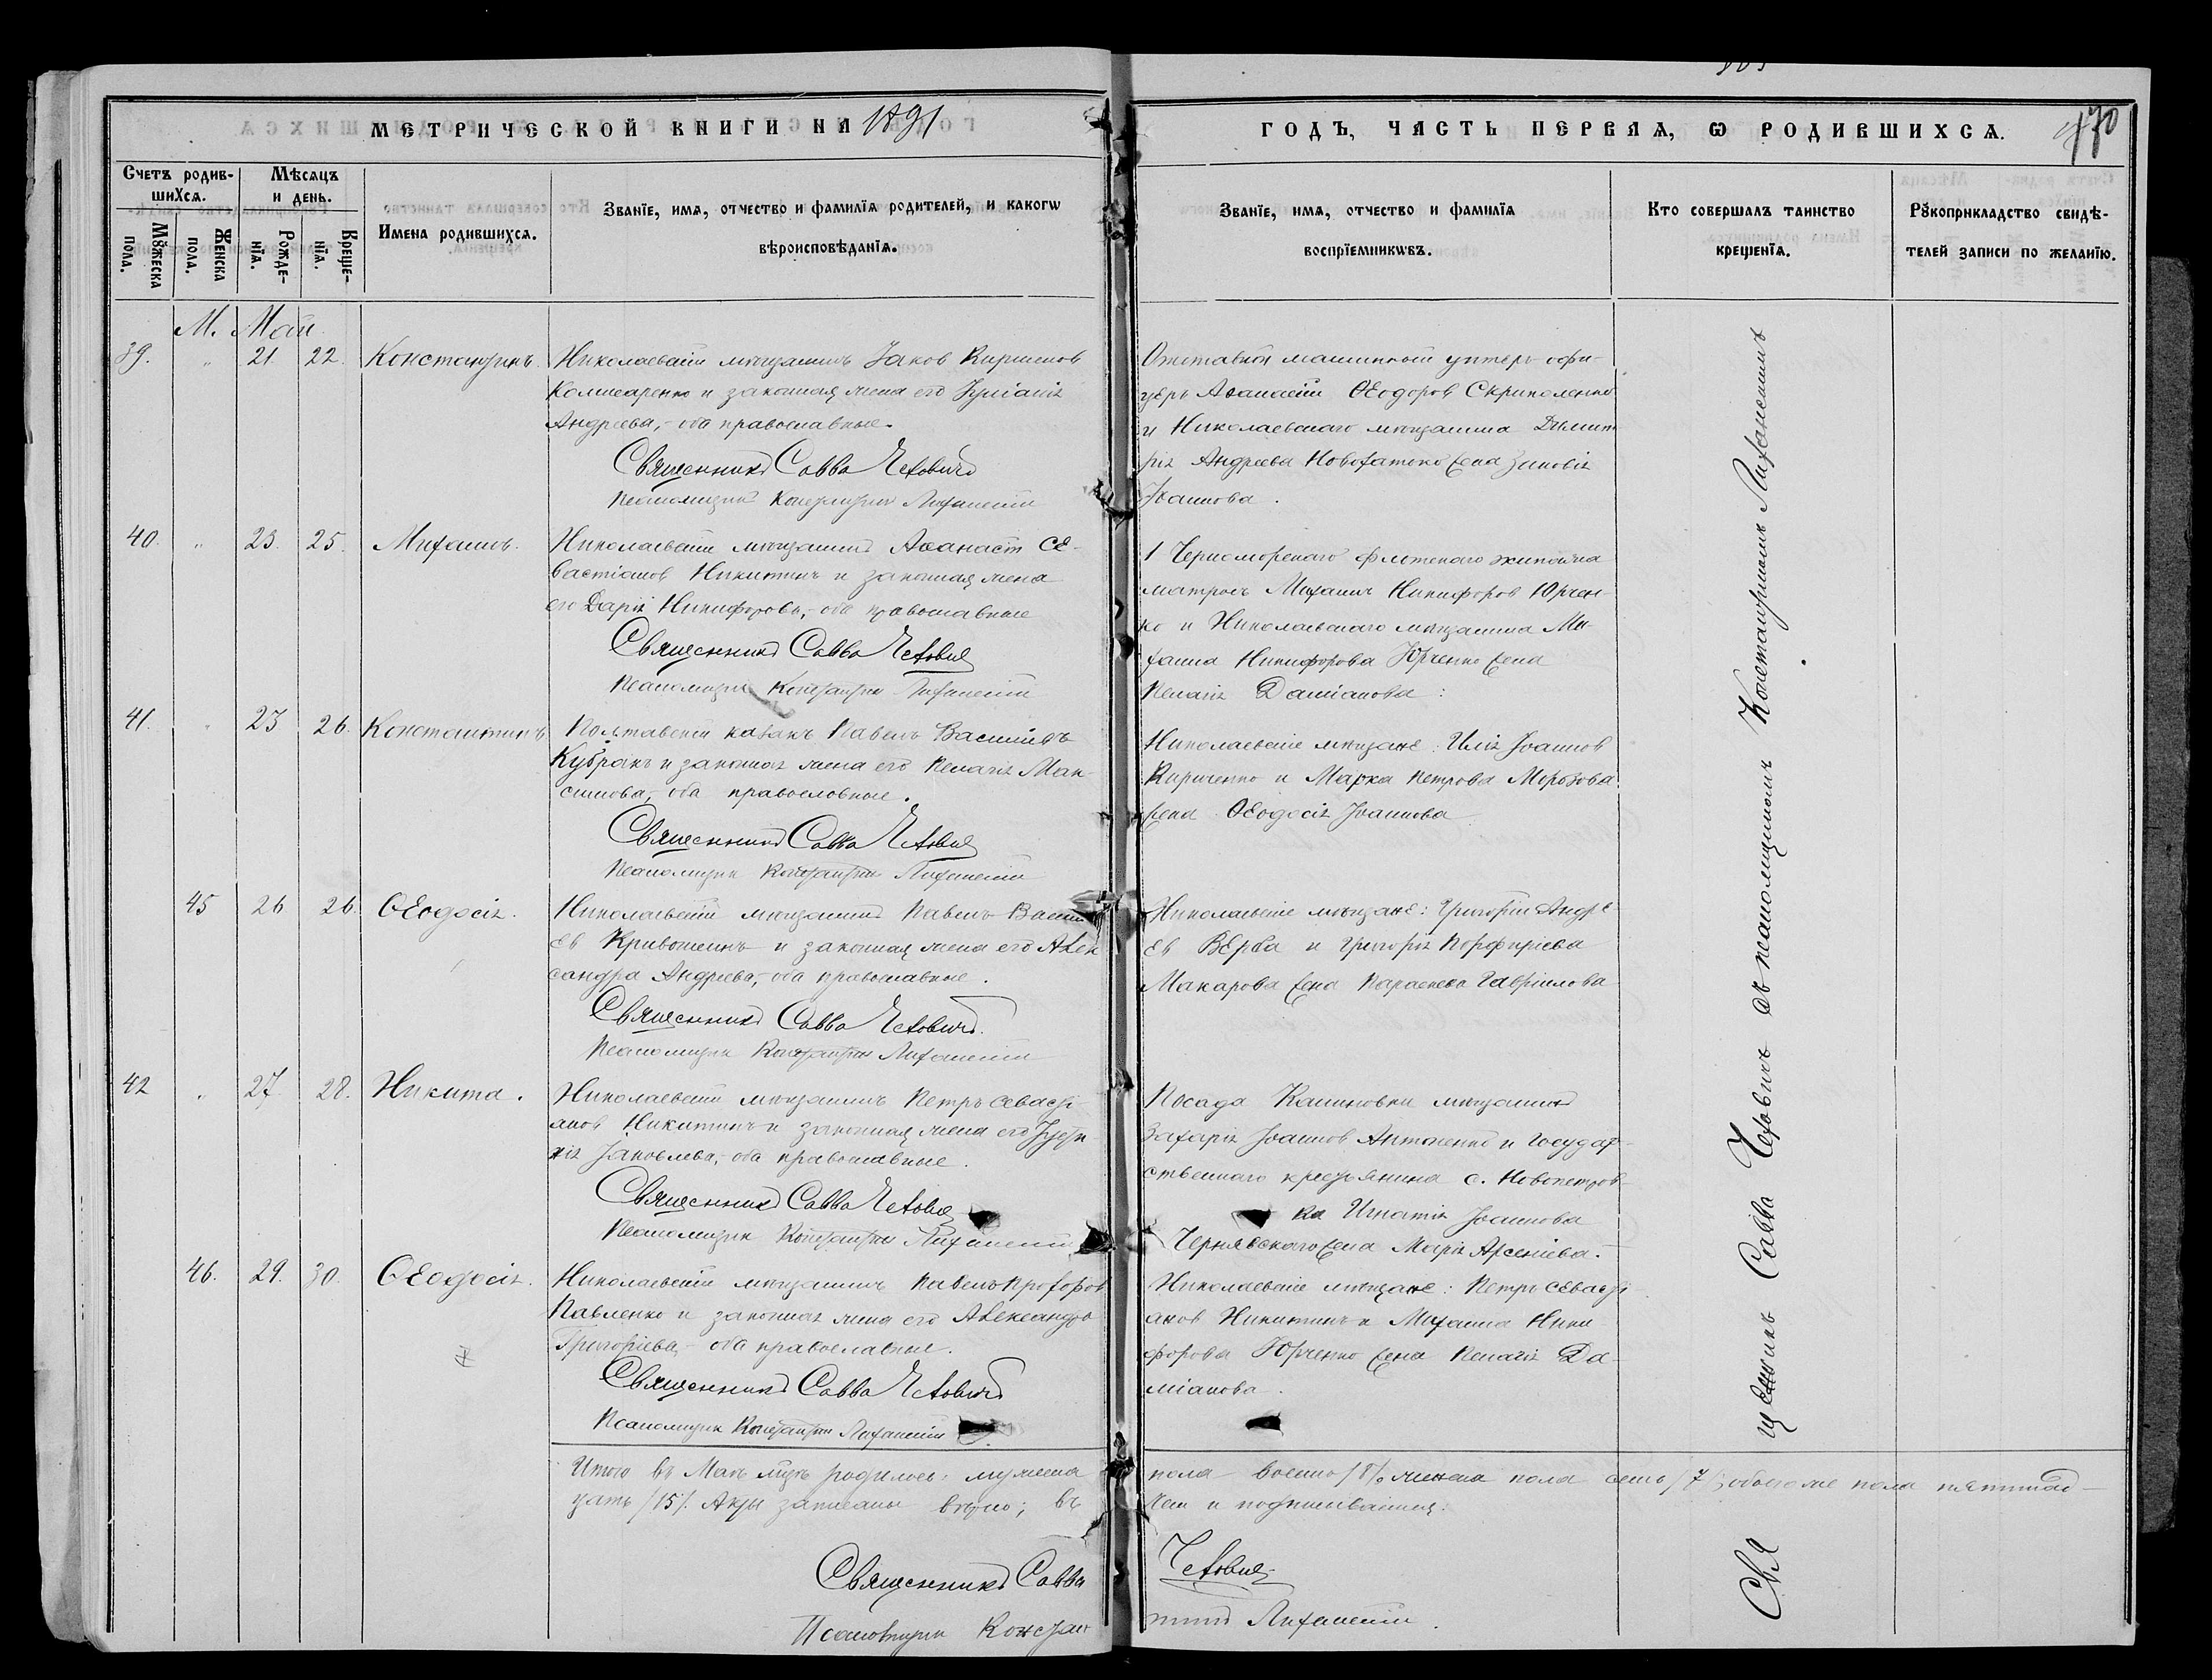 МЕТРИЧЕСКОЙ КНИГИ НА 1891
ГОДЪ, ЧАСТЬ ПЕРВАЯ, Ѡ РОДИВШИХСѦ.
170
Счетъ родив-
шихсѧ.
Мѣсѧцъ
и день.
Мꙋжеска
пола.
Женска
пола.
Рожде-
нїѧ.
Креще-
нїѧ.
Имена родившихсѧ.
Званїе, имѧ, отчество и фамилїѧ родителей, и какогѡ
вѣроисповѣданїѧ.
Званїе, имѧ, отчество и фамилїѧ
воспрїемникѡвъ.
Кто совершалъ таинство
крещенїѧ.
Рꙋкоприкладство свидѣ-
телей записи по желанїю.
М. Май
39. " 21. 22. Константинъ.
Николаевскій мѣщанинъ Іаков
Комисаренко и законная жена его Іуліанія
Андреева, - оба православные.
Священникъ Савва Чехович
Псаломщик Константин Лифанскій
Отставной машинный унтеръ-офи-
церъ Аѳанасій Ѳеодоров Скриполенко
и Николаевскаго мѣщанина Димит
рія Андреева жена Зиновія
Іоаннова.
40. " 23. 25. Михаилъ.
Николаевскій мѣщанинъ Аѳанасій Се-
вастіанов Никитинъ и законная жена
его Дарія Никифорова, - оба православные
Священникъ Савва Чехович
Псаломщик Константин Лифанскій
1 Черноморскаго флотскаго экипажа
матросъ Михаилъ Никифоров Юрчен-
ко и Николаевскаго мѣщанина Ми-
хаила Никифорова Юрченко жена
Пелагія Даміанова:
41. " 23 26. Константинъ
Полтавскій казакъ Павелъ Васильевъ
Кубракъ и законная жена его Пелагія Мак-
симова, оба православные.
Священникъ Савва Чехович
Псаломщик Константин Лифанскій
Николаевскіе мѣщане: Илія Іоаннов
Кириченко и Марка Петрова Морозова
жена Ѳеодосія Іоаннова
45 26 26. Ѳеодосія.
Николаевскій мѣщанинъ Павелъ Васи
ев Кривошеинъ и законная жена его Алек
сандра Андреева, - оба православные.
Священникъ Савва Чехович.
Псаломщик Константин Лифанскій
Николаевскіе мѣщане: Григорій Андре
ев Верба и Григорія Порфиріева
Макарова жена Параскева Гавріилова
42 " 27. 28. Никита.
Николаевскій мѣщанинъ Петръ Севасті
анов Никитинъ и законная жена его
Іаковлева, - оба православные.
Священникъ Савва Чехович
Псаломщик Константин Лифанскій
Посада Калиновки мѣщанинъ
Захарія Іоаннов Антоненко и государ-
ственнаго крестьянина с. Новопетров-
ка Игнатія Іоаннова
Чернявскаго жена Марія Арсеніева.
46. 29. 30. Ѳеодосія.
Николаевскій мѣщанинъ Павелъ Прохоров
Павленко и законная жена его Александра
Григоріева, - оба православные.
Священникъ Савва Чехович
Псаломщик Константин Лифанскій
Николаевскіе мѣщане: Петръ Севасті
анов Никитинъ и Михаила Ники
форова Юрченко жена Пелагія Да-
міанова.
Священникъ Савва Чеховичъ съ псаломщикомъ Константиномъ Лифанскимъ
Итого въ Маѣ мцѣ родилось: мужеска пола восемь /8/, женска пола семь /7/, обоего же пола пятнад-
цать /15/. Акты записаны вѣрно; въ чем и подписываемся:
Священникъ Савва Чехович
Псаломщик Константинъ Лифанскій.